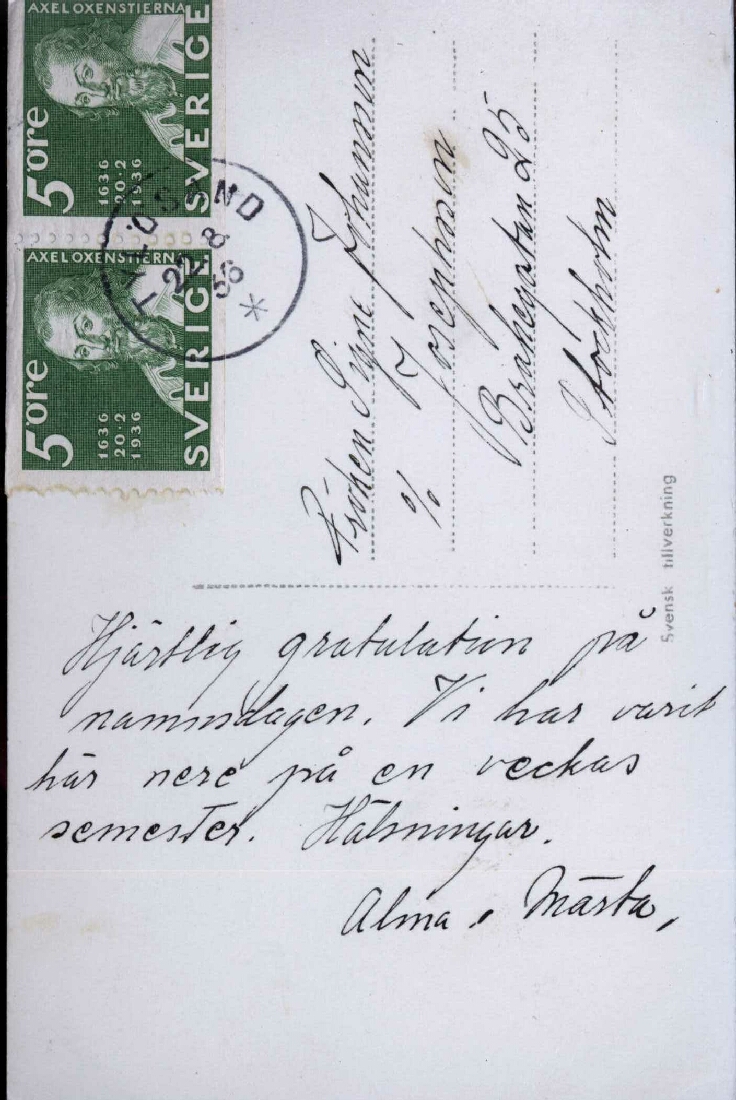 AXEL OXENSTIERNA
5 öre
1636
20·2
1936
SVERIGE
AXEL OXENSTIERNA
5 öre
1636
20·2
1936
SVERIGE
TYLÖSAND
22 8
36
*
Fröken Signe Johansson
℅ Josephson
Brahegatan 25
Stockholm
Svensk tillverkning
Hjärtlig gratulation på
namnsdagen. Vi har varit
här nere på en veckas
semester. Hälsningar.
Alma, Märta,